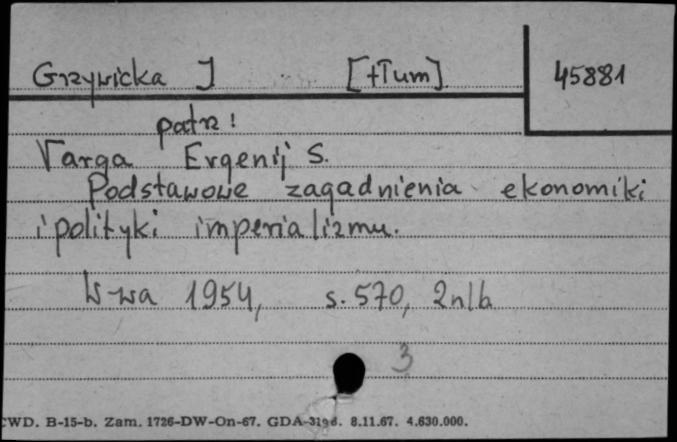 Grzywicka J [tłum] 45881
patrz:
Varga Evgenij S.
Podstawowe zagadnienia ekonomiki
i polityki imperializmu.
W-wa 1954, s. 570, 2nlb
3
CWD. B-15-b. Zam. 1726-DW-On-67. GDA- 8.11.67. 4.630.000.